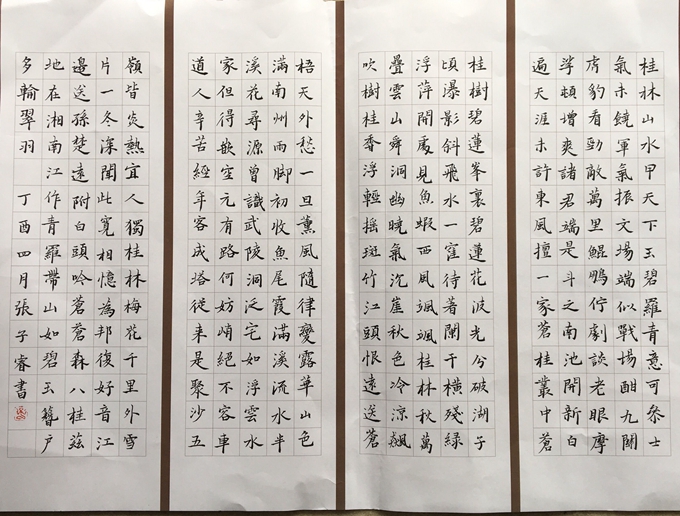 桂林山水甲天下玉碧羅青意可參士
氣未饒軍氣振文場端似戰場酣九關
虎豹看勁敵萬里鯤鵬佇劇談老眼摩
挲頓增爽諸君端是斗之南池開新白
遍天涯未許東風擅一家蒼桂叢中蒼
桂樹碧蓮峯裏碧蓮花波光兮破湖子
頃瀑影斜飛水一窪待著闌干橫殘綠
浮萍開處見魚蝦西風颯颯桂林秋萬
疊雲山舜洞幽曉氣沉崖秋色冷涼飆
吹樹桂香浮輕搖斑竹江頭恨遠送蒼
梧天外愁一旦薰風隨律變露華山色
滿南州雨脚初收魚尾霞滿溪流水半
溪花尋源曾識武陵洞泛宅如浮雲水
家但得欹空元有路何妨峭絕不容車
道人辛苦經年客成塔從來是聚沙五
嶺皆炎熱宜人獨桂林梅花千里外雪
片一冬深聞此寬相憶為邦復好音江
邊送孫楚遠附白頭吟蒼蒼森八桂茲
地在湘南江作青羅帶山如碧玉簪戶
多輸翠羽 丁酉四月張子睿書